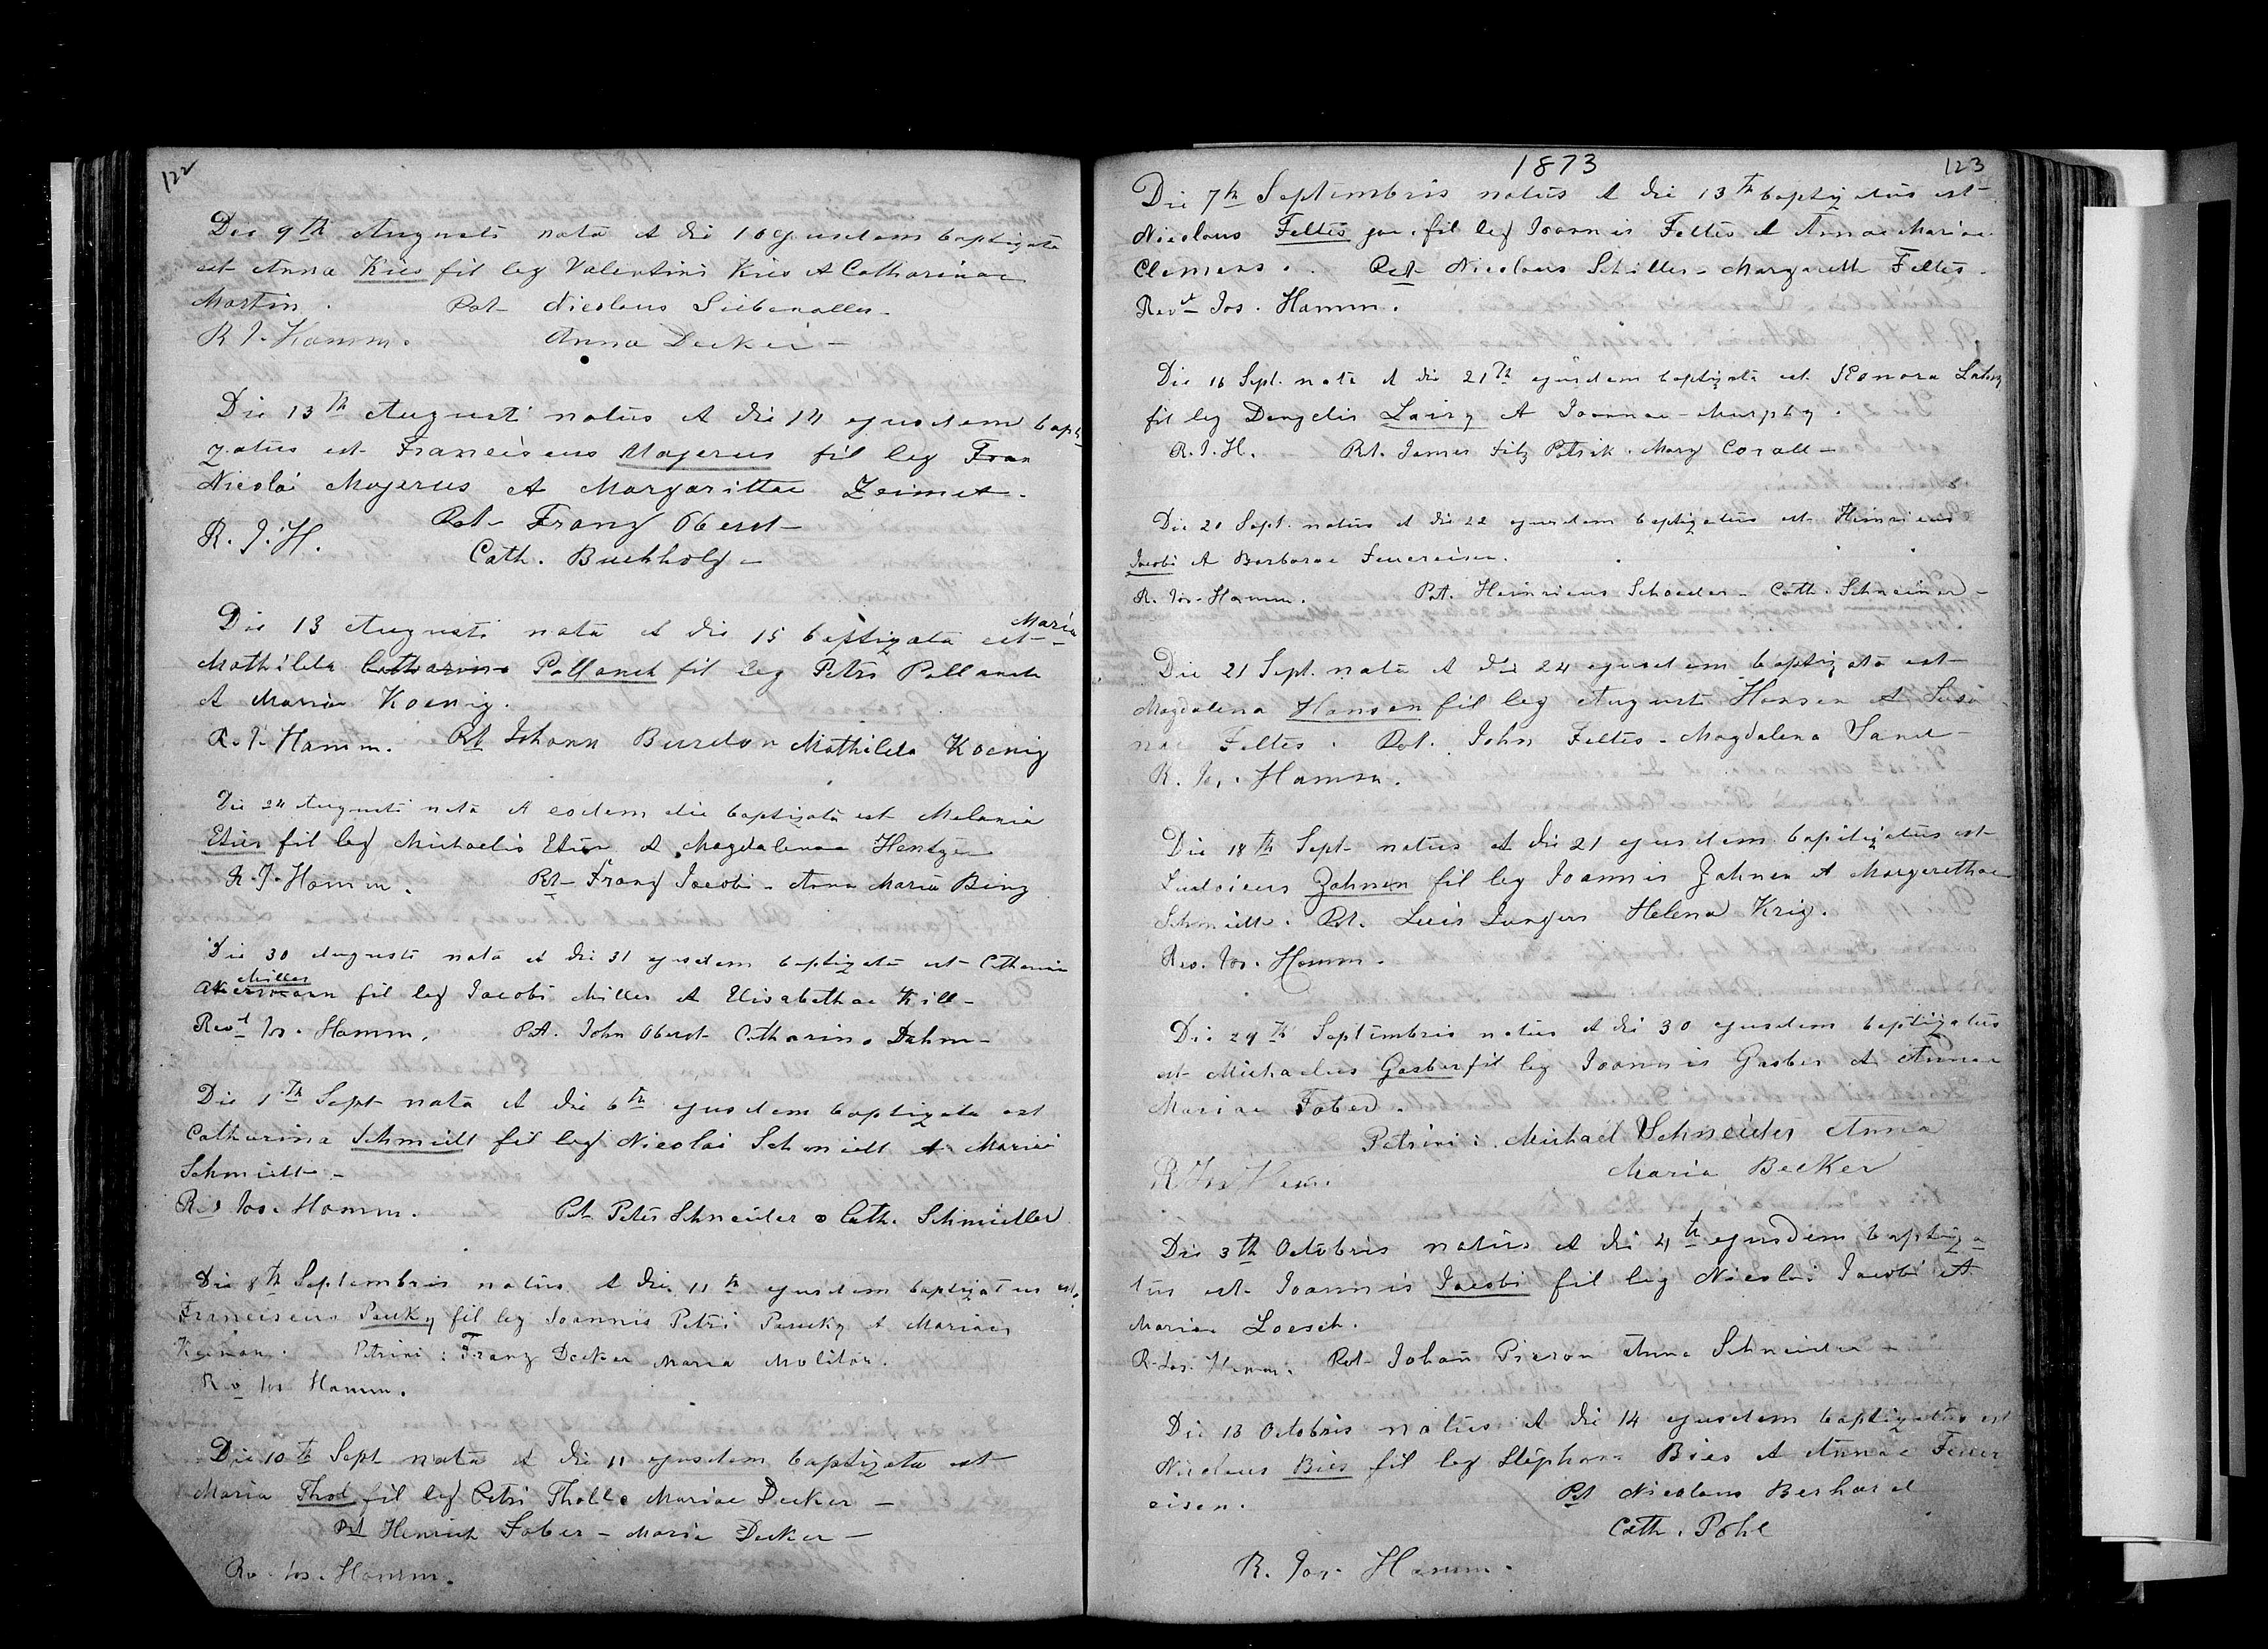 122
Die 9th Augusti nata et die 10 ejusdem baptizata
est Anna Kies fil leg Valentini Kies et Catharinae
Martin. Pat- Nicolaus Siebenaller-
R J. Hamm. Anna Decker-
Die 13th Augusti natus et die 14 ejusdem bapti
zatus est Franciscus Majerus fil leg Fran
Nicolai Majerus et Margarittae Zeimet.
Pat- Franz Oberst-
R. J. H. Cath. Buchholz-
Die 13 Augusti nata et die 15 baptizata est Maria
Mathilda Catharina fil leg Petri
et Maria Koenig.
R. J. Hamm. Pat Johann Burdon Mathilda Koenig
Die 24 Augusti nata et eodem die baptizata est Melania
fil leg Michaelis et Magdalenae Hentzen
R. J. Hamm. Pat- Franz Jacobi - Anna Maria Binz
Die 30 Augusti nata et die 31 ejusdem baptizata est Catharina
Miller
Akermann fil leg Jacobi Miller et Elisabethae Kill-
Revd Jos. Hamm. Pat. John Oberst Catharina Dahm-
Die 1th Sept nata et die 6th ejusdem baptizata est
Catharina Schmidt fil leg Nicolai Schmidt et Maria
Schmidt-
Rev Jos. Hamm. Pat Peter Schneider & Cath. Schmidtler
Die 8th Septembris natus et die 11th ejusdem baptizatus est
Franciscus fil leg Joannis Petri et Mariae
Petrini: Franz Decker Maria Molitor.
Rev Jos Hamm.
Die 10th Sept nata et die 11 ejusdem baptizata est
Maria Thol fil leg Petri Tholl & Mariae Decker-
Pat Henrich Faber - Maria Decker-
Rev. Jos. Hamm.
1873
123
Die 7th Septembris natus et die 13th baptizatus est
Nicolaus Feltes fil leg Joannis Feltes et Annae Mariae
Clemens. Pat- Nicolaus Schiltz - Margareth Feltes.
Revd Jos. Hamm.
Die 16 Sept. nata et die 21th ejusdem baptizata est
fil leg et Joannae Murphy.
R. J. H. Pat. James Fitz Patrik. Mary Corall-
Die 20 Sept. natus et die 22 ejusdem baptizatus est Heinricus
Jacobi et Barbarae Feuereisen.
R. Jos. Hamm. Pat. Heinricus Schroeder - Cath. Schreiner-
Die 21 Sept. nata et die 24 ejusdem baptizata est
Magdalena Hansen fil leg Augusti Hansen et Susa
nae Feltes. Pat. John Feltes - Magdalena Sand-
R. Jos. Hamm.
Die 18th Sept natus et die 21 ejusdem baptizatus est
Ludoicus Zahnen fil leg Joannis Zahnen et Margarethae
Schmidt. Pat. Luis Jungers Helena Krig.
Rev. Jos. Hamm.
Die 29th Septembris natus et die 30 ejusdem baptizatus
est Michaelus Gasber fil leg Joannis Gasber et Annae
Mariae Faber.
Petrini: Michael Schneider Anna
R Jos Hamm Maria Becker
Die 3th Octobris natus et die 4th ejusdem baptiza
tus est Joannis Jacobi fil leg Nicolai Jacobi et
Mariae Loesch.
R. Jos. Hamm. Pat- Johann Pieron Anna Schneider-
Die 13 Octobris natus et die 14 ejusdem baptizatus est
Nicolaus Bies fil leg Stephani Bies et Annae Feuer
eisen. Pat Nicolaus Berhard
Cath. Pohl
R. Jos. Hamm.